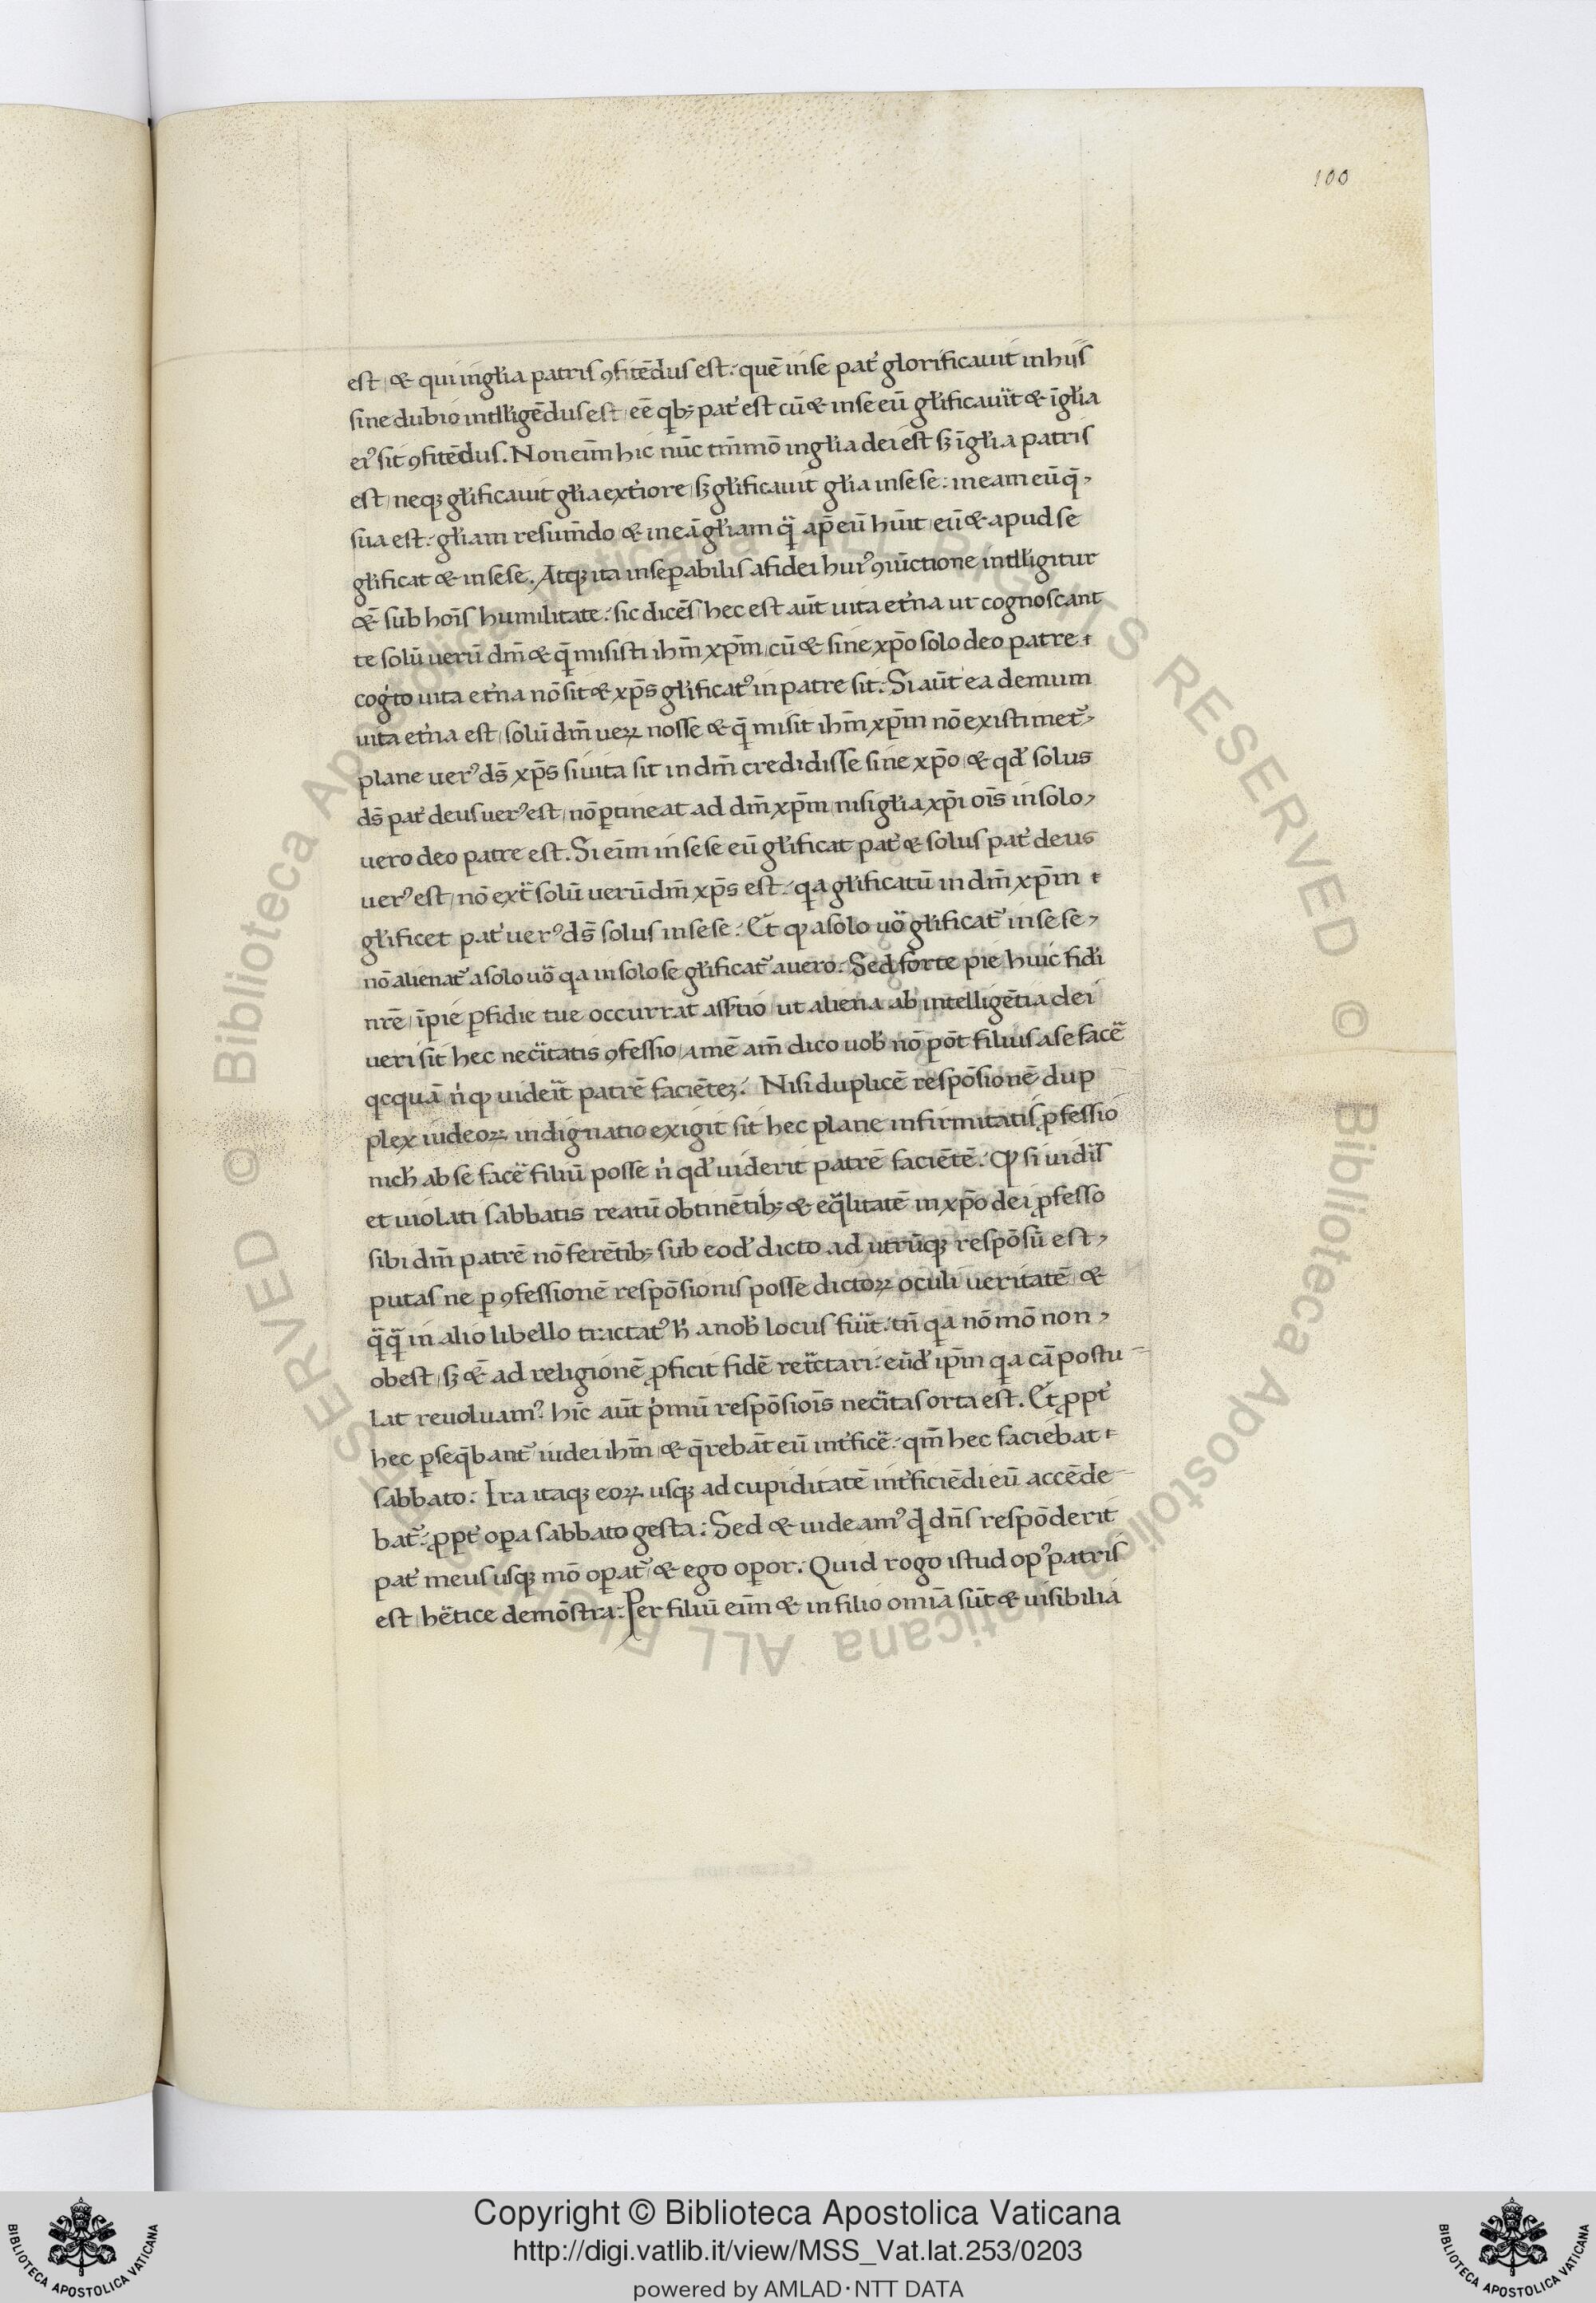 100
est, & qui in gl̃ia patris ꝯfitēdus est: quē in se pat̉ glorificauit in hijs
sine dubio intll̃igēdus est, eē qb; pat̉ est cū & in se eū gl̃ificauit̉ & ī gl̃ia
eiꝰ sit ꝯfitēdus. Non eim̄ hic nūc tm̄mō in gl̃ia dei est sꝫ ī gl̃ia patris
est, neqꝫ gl̃ificauit gl̃ia ext̉iore, sꝫ gl̃ificauit gl̃ia in sese: in eam eū q̄,
sua est: gl̃iam resum̄do & in eā gl̃iam q̄ ap̄ eū hūit, eū & apud se
gl̃ificat & in sese. Atqꝫ ita inseꝑabilis a fidei huiꝰ ꝯiūctione intll̃igitur
&̄ sub hoīs humilitate: sic dicēs, hec est aūt uita et̉na ut cognoscant
te solū uerū dm̄ & q̄ misisti ihm̄ xp̄m, cū & sine xp̄o solo deo patre
cog̉to uita et̉na nō sit & xp̄s gl̃ificatꝰ in patre sit: Si aūt ea demum
uita et̉na est, solū dm̄ ueꝝ nosse & q̄ misit ihm̄ xp̄m nō existimet̉,
plane uerꝰ ds̄ xp̄s si uita sit in dm̄ credidisse sine xp̄o, & qd̉ solus
ds̄ pat̉ deus uerꝰ est, nō ꝑtineat ad dm̄ xp̄m, nisi gl̃ia xp̄i oīs in solo,
uero deo patre est. Si eim̄ in sese eū gl̃ificat pat̉ & solus pat̉ deus
uerꝰ est, nō ext̉ solū uerū dm̄ xp̄s est: qa gl̃ificatū in dm̄ xp̄m
gl̃ificet pat̉ uerꝰ ds̄ solus in sese: Et ꝙ a solo uo̎ gl̃ificat̉ in sese,
nō alienat̉ a solo uo̎ qa in solo se gl̃ificat̉ a uero: Sed forte pie huic fid̉i
nrē, īpie ꝑfidie tue occurrat ass̉tio, ut aliena ab intelligētia dei
ueri sit hec necc̄itatis ꝯfessio, amē am̄ dico uob̉ nō pōt filius a se face̎
qcquā n̉ ꝙ uiderit̉ patrē faciētē: Nisi duplicē respōsionē dup
plex iudeoꝝ indignatio exigit sit hec plane infirmitatis ꝓfessio
nich̉ ab se face̎ filiū posse n̉ qd̉ uiderit patrē faciētē: ꝙ si uidi̎s
et uiolati sabbatis reatū obtinētib; & eq̄litatē in xp̄o dei ꝓfesso
sibi dm̄ patrē nō ferētib; sub eod̉ dicto ad utrūqꝫ respōsū est,
putas ne ꝑ ꝯfessionē respōsionis posse dictoꝝ oculi ueritatē, &
q̄q̄ in alio libello tractatꝰ h̉ a nob̉ locus fuit̉: tn̄ qa nō mō non,
obest, sꝫ &̄ ad religionē ꝓficit fidē ret̉ctari: eūd̉ ip̄m qa cā postu
lat reuoluamꝰ. hīc aūt p̉mū respōsiois̄ nec̄itas orta est. Et ꝓpt̉
hec ꝑseq̄bant̉ iudei ihm̄, & q̄rebāt eū int̉fice̎: qm̄ hec faciebat
sabbato: Ira itaqꝫ eoꝝ usqꝫ ad cupiditatē int̉ficiēdi eū accēde
bat̉: ꝓpt̉ oꝑa sabbato gesta: Sed & uideamꝰ qd̉ dn̄s respōderit
pat̉ meus usqꝫ mō oꝑat̉ & ego oꝑor. Quid rogo istud opꝰ patris
est, he̎tice demōstra: Per filiū eim̄ & in filio omīa sūt & uisibilia
Copyright © Biblioteca Apostolica Vaticana
http://digi.vatlib.it/view/MSS_Vat.lat.253/0203
powered by AMLAD·NTT DATA